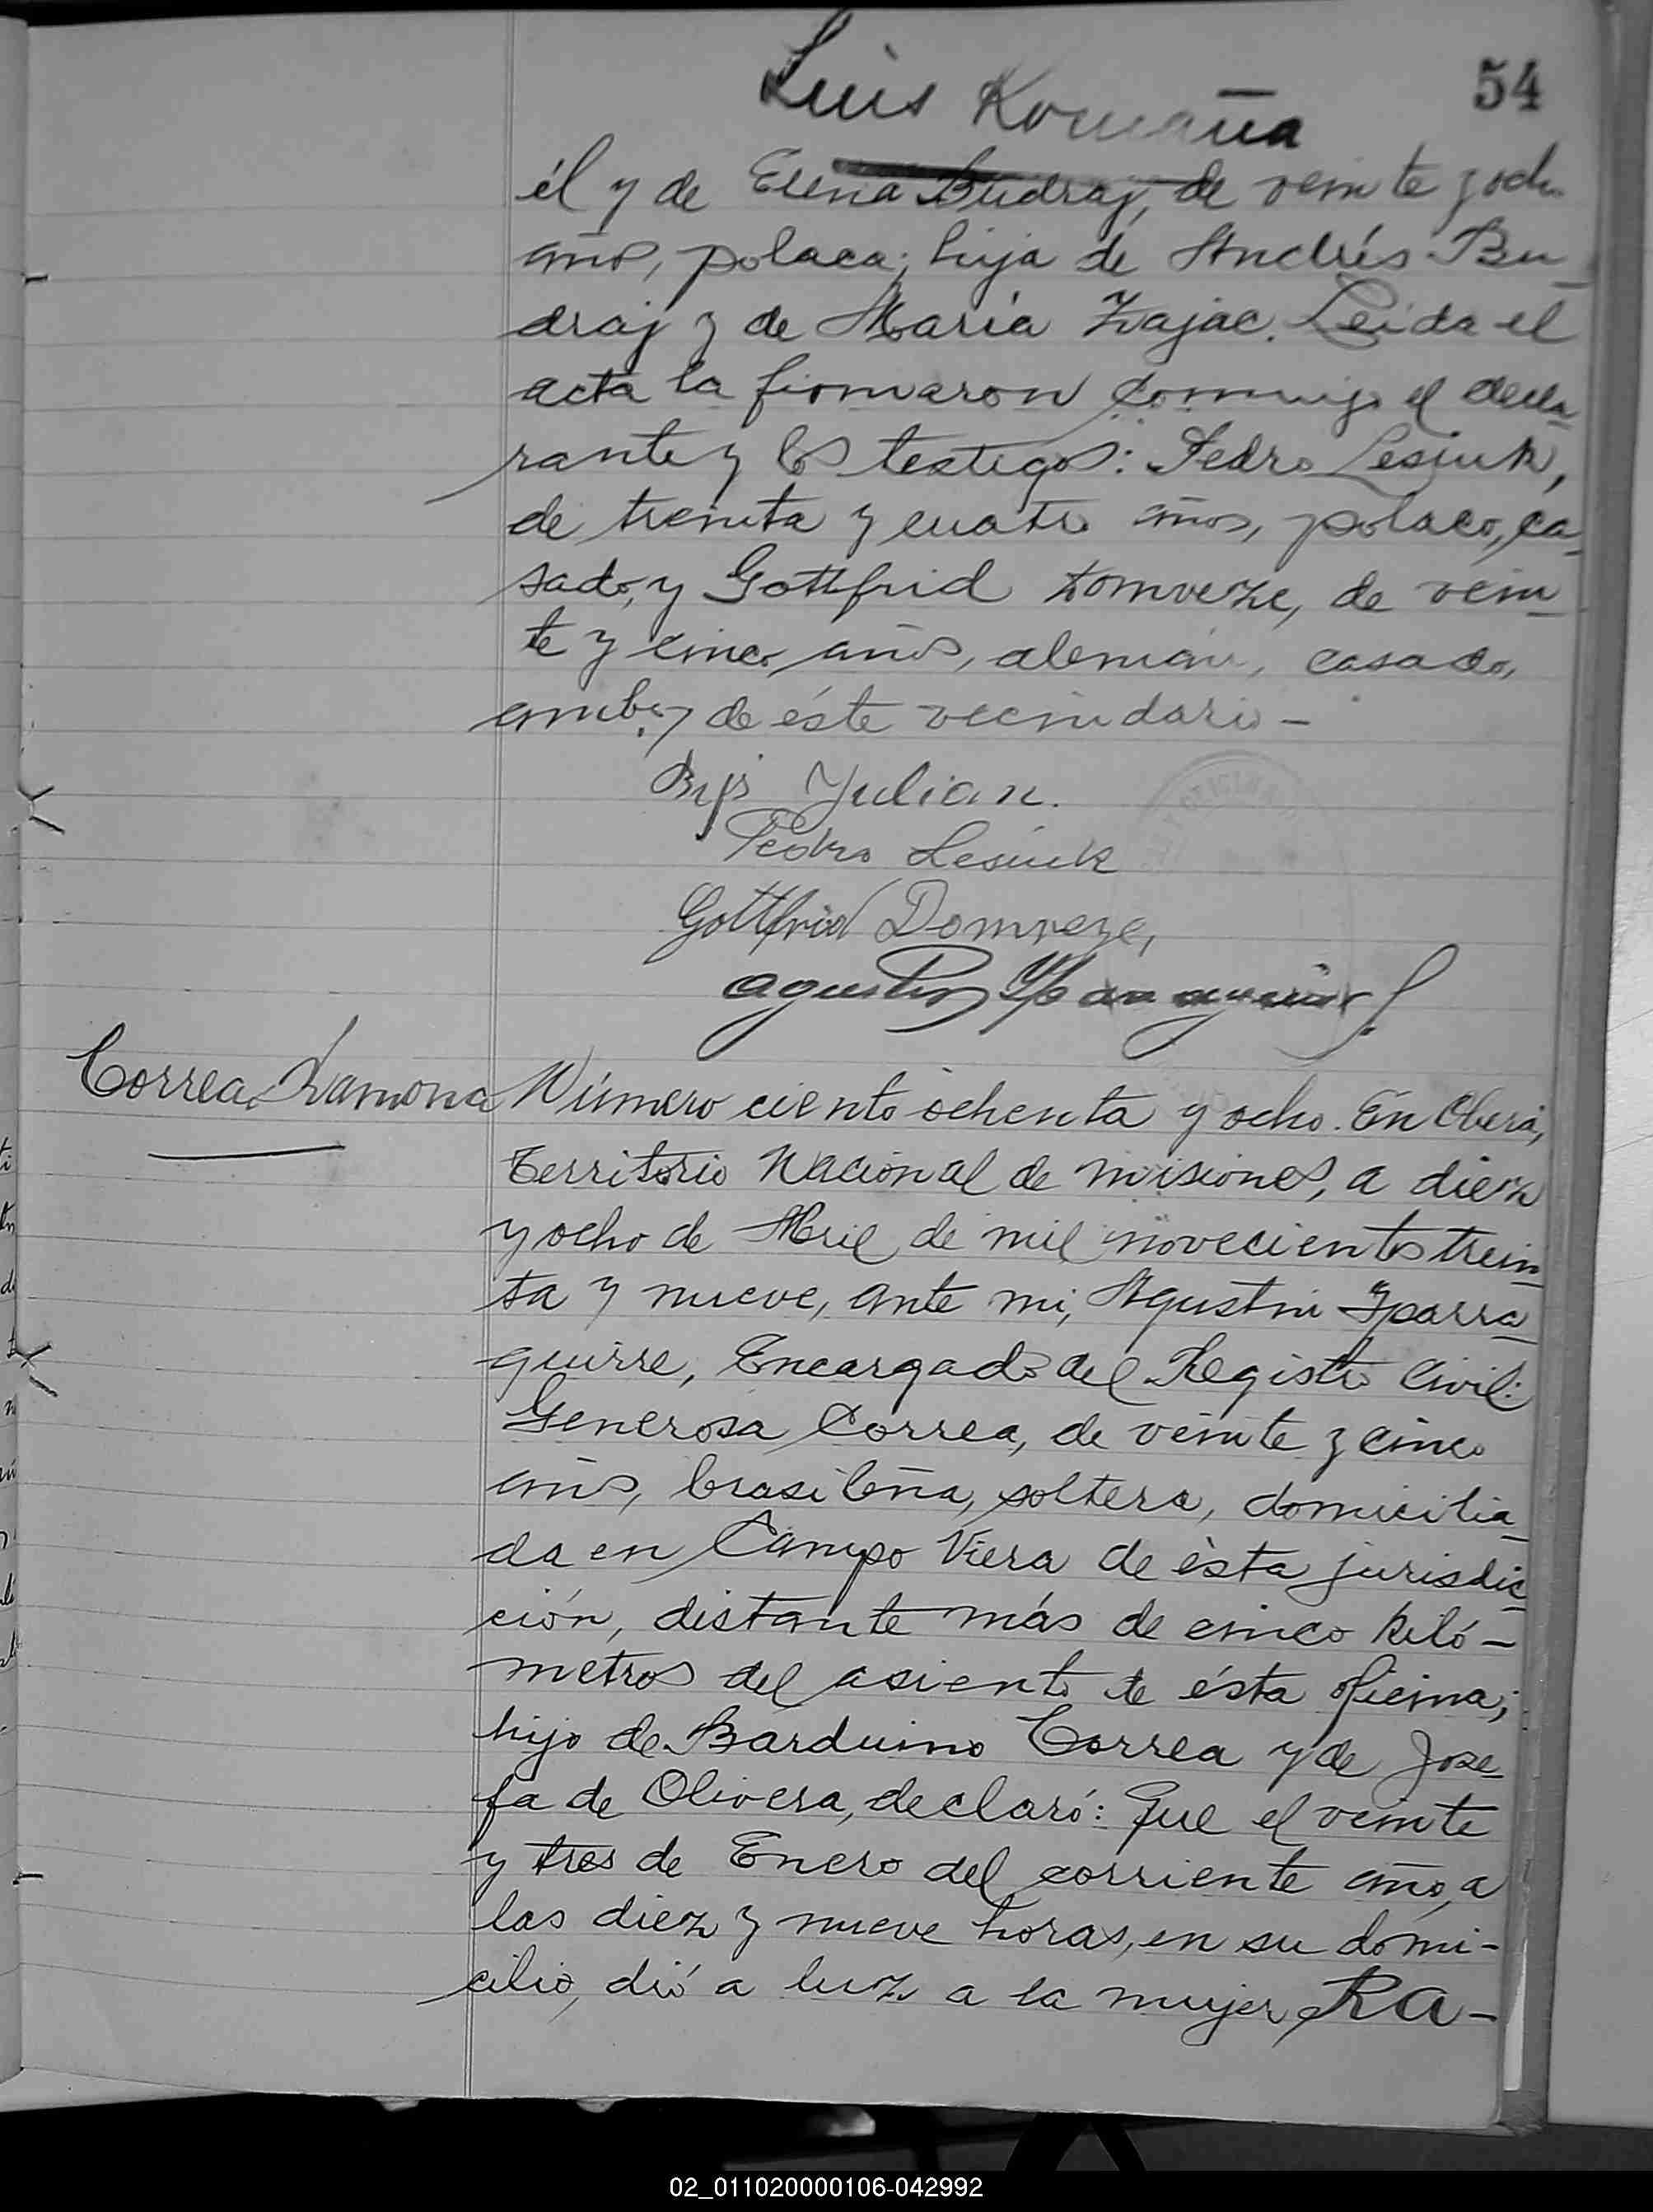 Luis Romaña
54
él y de Elena Budraj, de veinte y ocho
años, polaca; hija de Andrés Bu
draj y de María Zajac. Leida el
acta la firmaron conmigo el decla
rante y los testigos: Pedro Lesiuk,
de treinta y cuatro años, polaco, ca
sado, y Gottfrid Domveze, de vein
te y cinco años, alemán, casado,
ambos de éste vecindario -
Julian.
Pedro Lesiuk
Gottfrid Domveze,
Agustin Yparraguirre
Correa Ramona
Número ciento ochenta y ocho. En Oberá,
Territorio Nacional de Misiones, a diez
y ocho de Abril de mil novecientos trein
ta y nueve, ante mi, Agustin Yparra
guirre, Encargado del Registro Civil:
Generosa Correa, de veinte y cinco
años, brasileña, soltera, domicilia
da en Campo Viera de ésta jurisdic
ción, distante más de cinco kiló-
metros del asiento de ésta oficina;
hijo de Barduino Correa y de Jose
fa de Olivera, declaró: Que el veinte
y tres de Enero del corriente año, a
las diez y nueve horas, en su domi-
cilio, dió a luz a la mujer Ra-
02_011020000106-042992